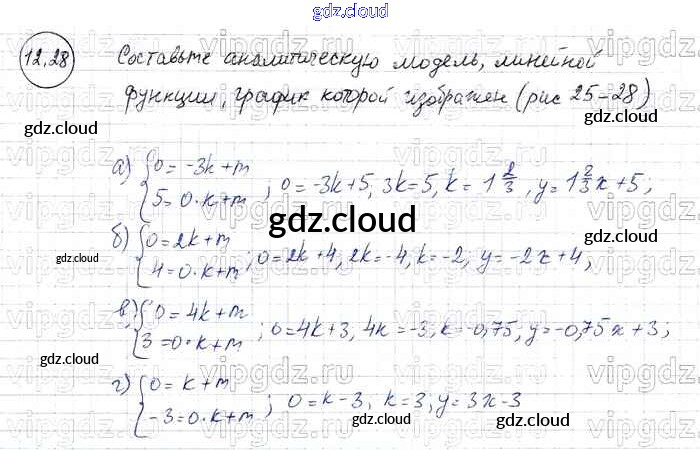 gdz.cloud
12.28 Составьте аналитическую модель, линейной
функции, график которой изображен (рис 25-28)
gdz.cloud gdz.cloud
а) {0 = -3k + m
{5 = 0·k + m ; 0 = -3k+5, 3k=5, k = 1 2/3, y = 1 2/3 x + 5;
gdz.cloud
б) {0 = 2k + m
{4 = 0·k + m ; 0 = 2k + 4, 2k = -4, k = -2; y = -2x + 4;
gdz.cloud gdz.cloud
в) {0 = 4k + m
{3 = 0·k + m ; 0 = 4k + 3, 4k = -3, k = -0,75, y = -0,75x + 3;
gdz.cloud gdz.cloud
г) {0 = k + m
{-3 = 0·k + m ; 0 = k - 3, k = 3, y = 3x - 3
gdz.cloud gdz.cloud